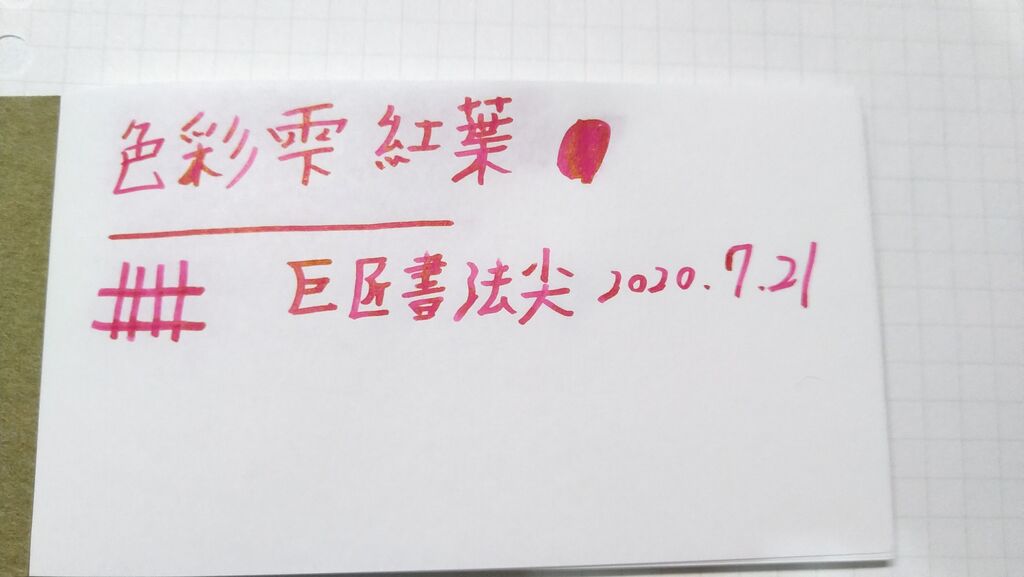 色彩雫 紅葉
巨匠書法尖 2020.7.21